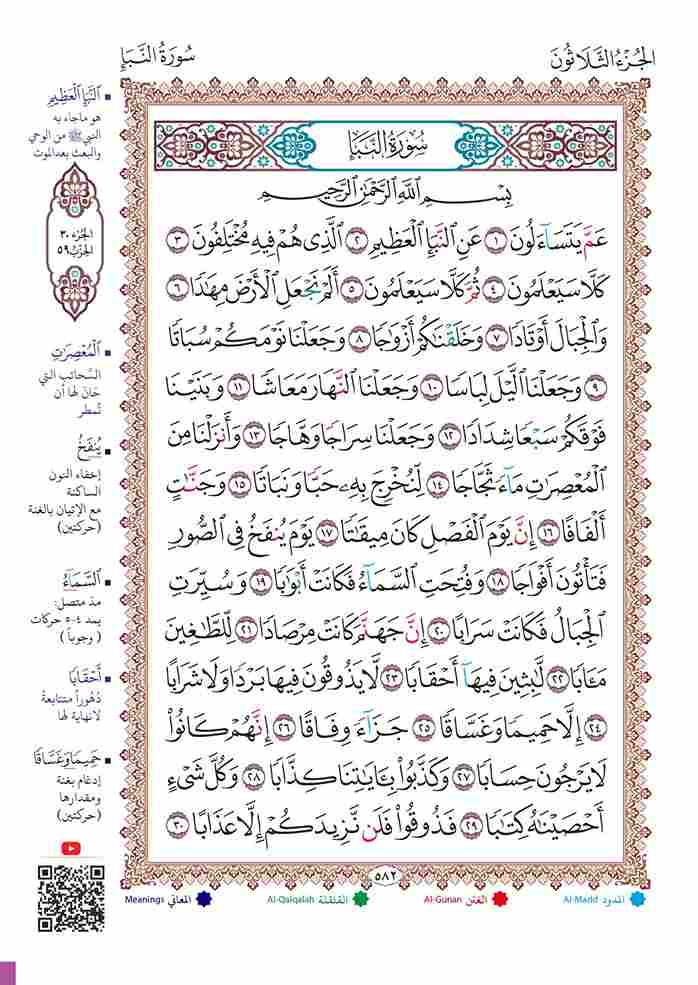 الجُزْءُ الثَّلَاثُونَ
سُورَةُ النَّبَإِ
سُورَةُ النَّبَإِ
بِسْمِ ٱللَّهِ ٱلرَّحْمَٰنِ ٱلرَّحِيمِ
عَمَّ يَتَسَآءَلُونَ ١ عَنِ ٱلنَّبَإِ ٱلْعَظِيمِ ٢ ٱلَّذِى هُمْ فِيهِ مُخْتَلِفُونَ ٣
كَلَّا سَيَعْلَمُونَ ٤ ثُمَّ كَلَّا سَيَعْلَمُونَ ٥ أَلَمْ نَجْعَلِ ٱلْأَرْضَ مِهَٰدًا ٦
وَٱلْجِبَالَ أَوْتَادًا ٧ وَخَلَقْنَٰكُمْ أَزْوَٰجًا ٨ وَجَعَلْنَا نَوْمَكُمْ سُبَاتًا
٩ وَجَعَلْنَا ٱلَّيْلَ لِبَاسًا ١٠ وَجَعَلْنَا ٱلنَّهَارَ مَعَاشًا ١١ وَبَنَيْنَا
فَوْقَكُمْ سَبْعًا شِدَادًا ١٢ وَجَعَلْنَا سِرَاجًا وَهَّاجًا ١٣ وَأَنزَلْنَا مِنَ
ٱلْمُعْصِرَٰتِ مَآءً ثَجَّاجًا ١٤ لِّنُخْرِجَ بِهِۦ حَبًّا وَنَبَاتًا ١٥ وَجَنَّٰتٍ
أَلْفَافًا ١٦ إِنَّ يَوْمَ ٱلْفَصْلِ كَانَ مِيقَٰتًا ١٧ يَوْمَ يُنفَخُ فِى ٱلصُّورِ
فَتَأْتُونَ أَفْوَاجًا ١٨ وَفُتِحَتِ ٱلسَّمَآءُ فَكَانَتْ أَبْوَٰبًا ١٩ وَسُيِّرَتِ
ٱلْجِبَالُ فَكَانَتْ سَرَابًا ٢٠ إِنَّ جَهَنَّمَ كَانَتْ مِرْصَادًا ٢١ لِّلطَّٰغِينَ
مَـَٔابًا ٢٢ لَّٰبِثِينَ فِيهَآ أَحْقَابًا ٢٣ لَّا يَذُوقُونَ فِيهَا بَرْدًا وَلَا شَرَابًا
٢٤ إِلَّا حَمِيمًا وَغَسَّاقًا ٢٥ جَزَآءً وِفَاقًا ٢٦ إِنَّهُمْ كَانُوا۟
لَا يَرْجُونَ حِسَابًا ٢٧ وَكَذَّبُوا۟ بِـَٔايَٰتِنَا كِذَّابًا ٢٨ وَكُلَّ شَىْءٍ
أَحْصَيْنَٰهُ كِتَٰبًا ٢٩ فَذُوقُوا۟ فَلَن نَّزِيدَكُمْ إِلَّا عَذَابًا ٣٠
النَّبَإِ الْعَظِيمِ
هو ماجاء به
النبي ﷺ من الوحي
والبعث بعدالموت
الجُزء ٣٠
الحِزْب ٥٩
ٱلْمُعْصِرَٰتِ
السَّحائب التي
حَانَ لها أن
تُمطر
يُنفَخُ
إخفاء النون
الساكنة
مع الإتيان بالغنة
(حركتين)
السَّمَآءُ
مدّ متصل:
يمد ٤-٥ حركات
( وجوباً )
أَحْقَابًا
دُهُوراً متتابعةً
لانهاية لها
حَمِيمًا وَغَسَّاقًا
إدغام بغنة
ومقدارها
(حركتين)
٥٨٢
المدود Al-Madd
الغنن Al-Gunan
القلقلة Al-Qalqalah
المعاني Meanings